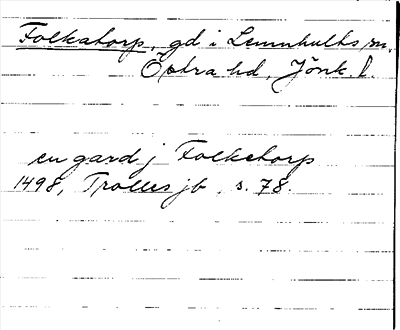 Folkatorp, gd i Lemnhults sn,
Östra hd, Jönk. l.
en gard j Folketorp
1498, Trolles jb, s. 78.